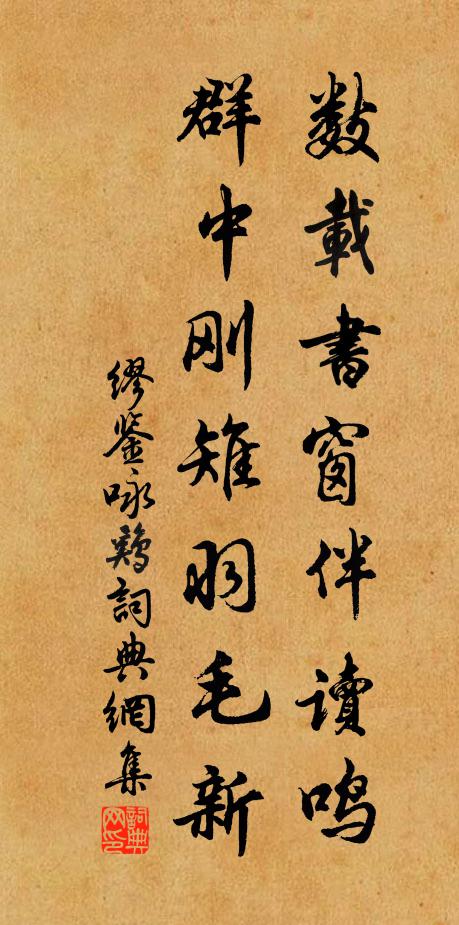 數載書窗伴讀鳴
群中刚雉羽毛新
繆鉴咏鷄詞典網集
詞典网印